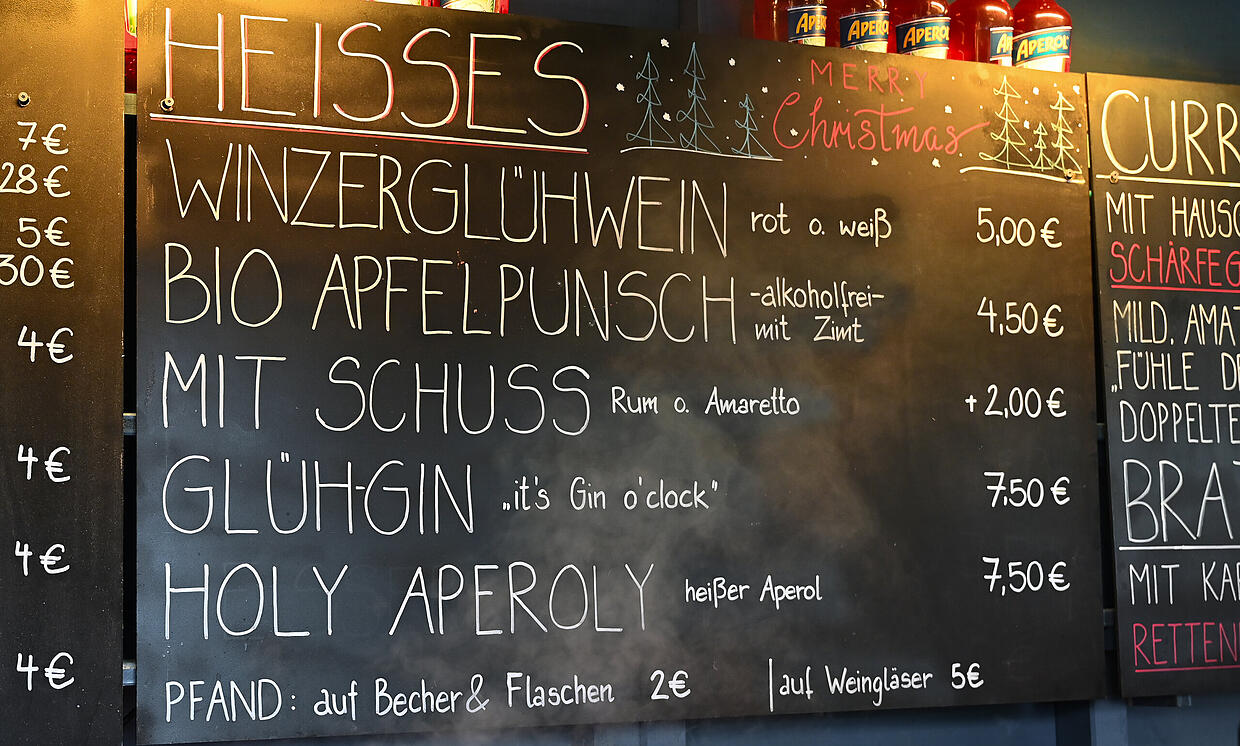 7€
28€
5€
30€
4€
4€
4€
4€
APEROL
APEROL
APEROL
HEISSES
MERRY
Christmas
WINZERGLÜHWEIN rot o. weiß 5,00€
BIO APFELPUNSCH -alkoholfrei- mit Zimt 4,50€
MIT SCHUSS Rum o. Amaretto +2,00€
GLÜH-GIN „it's Gin o'clock" 7,50€
HOLY APEROLY heißer Aperol 7,50€
PFAND: auf Becher & Flaschen 2€ | auf Weingläser 5€
CURR
MIT HAUS
SCHÄRFEG
MILD. AMA
„FÜHLE DE
DOPPELTE
BRAT
MIT KAR
RETTEN